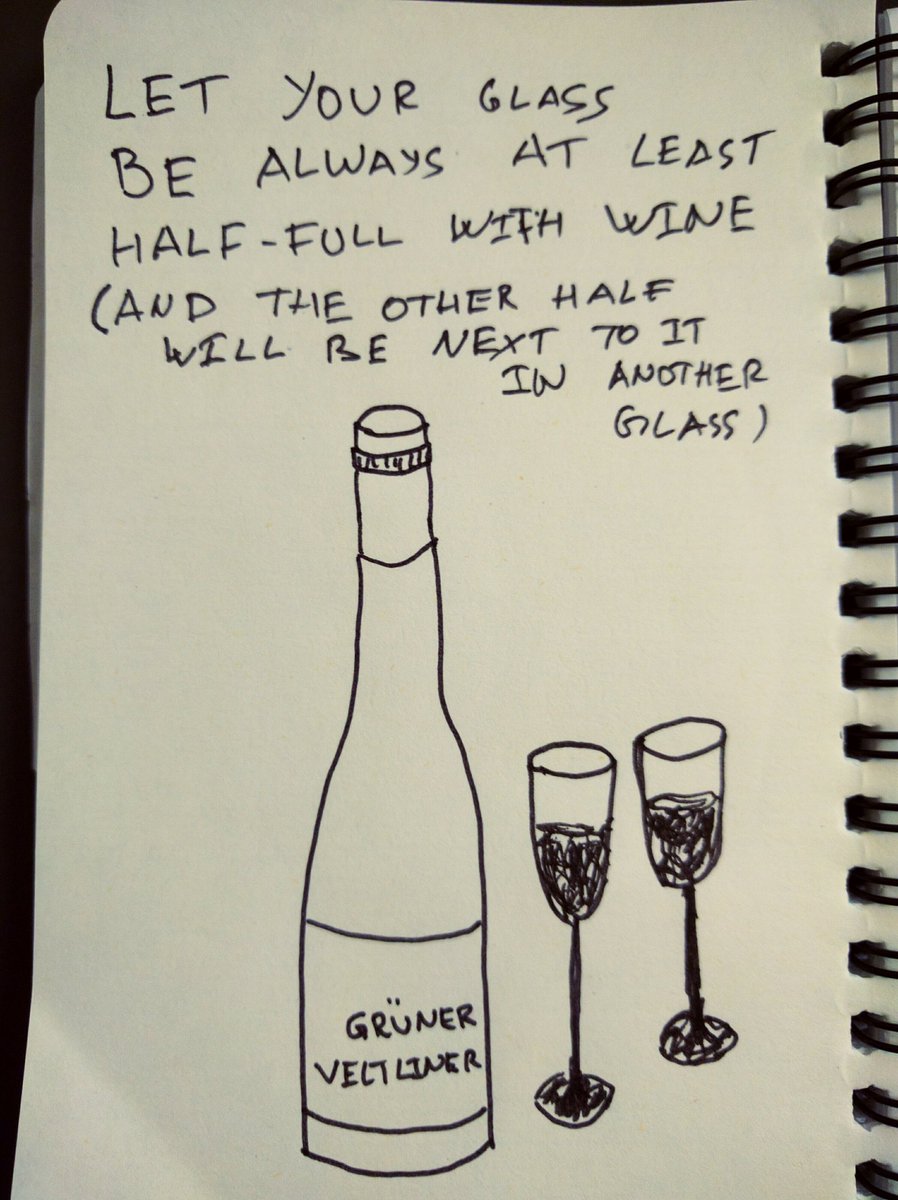 LET YOUR GLASS
BE ALWAYS AT LEAST
HALF-FULL WITH WINE
(AND THE OTHER HALF
WILL BE NEXT TO IT
IN ANOTHER
GLASS)
GRÜNER
VELTLINER